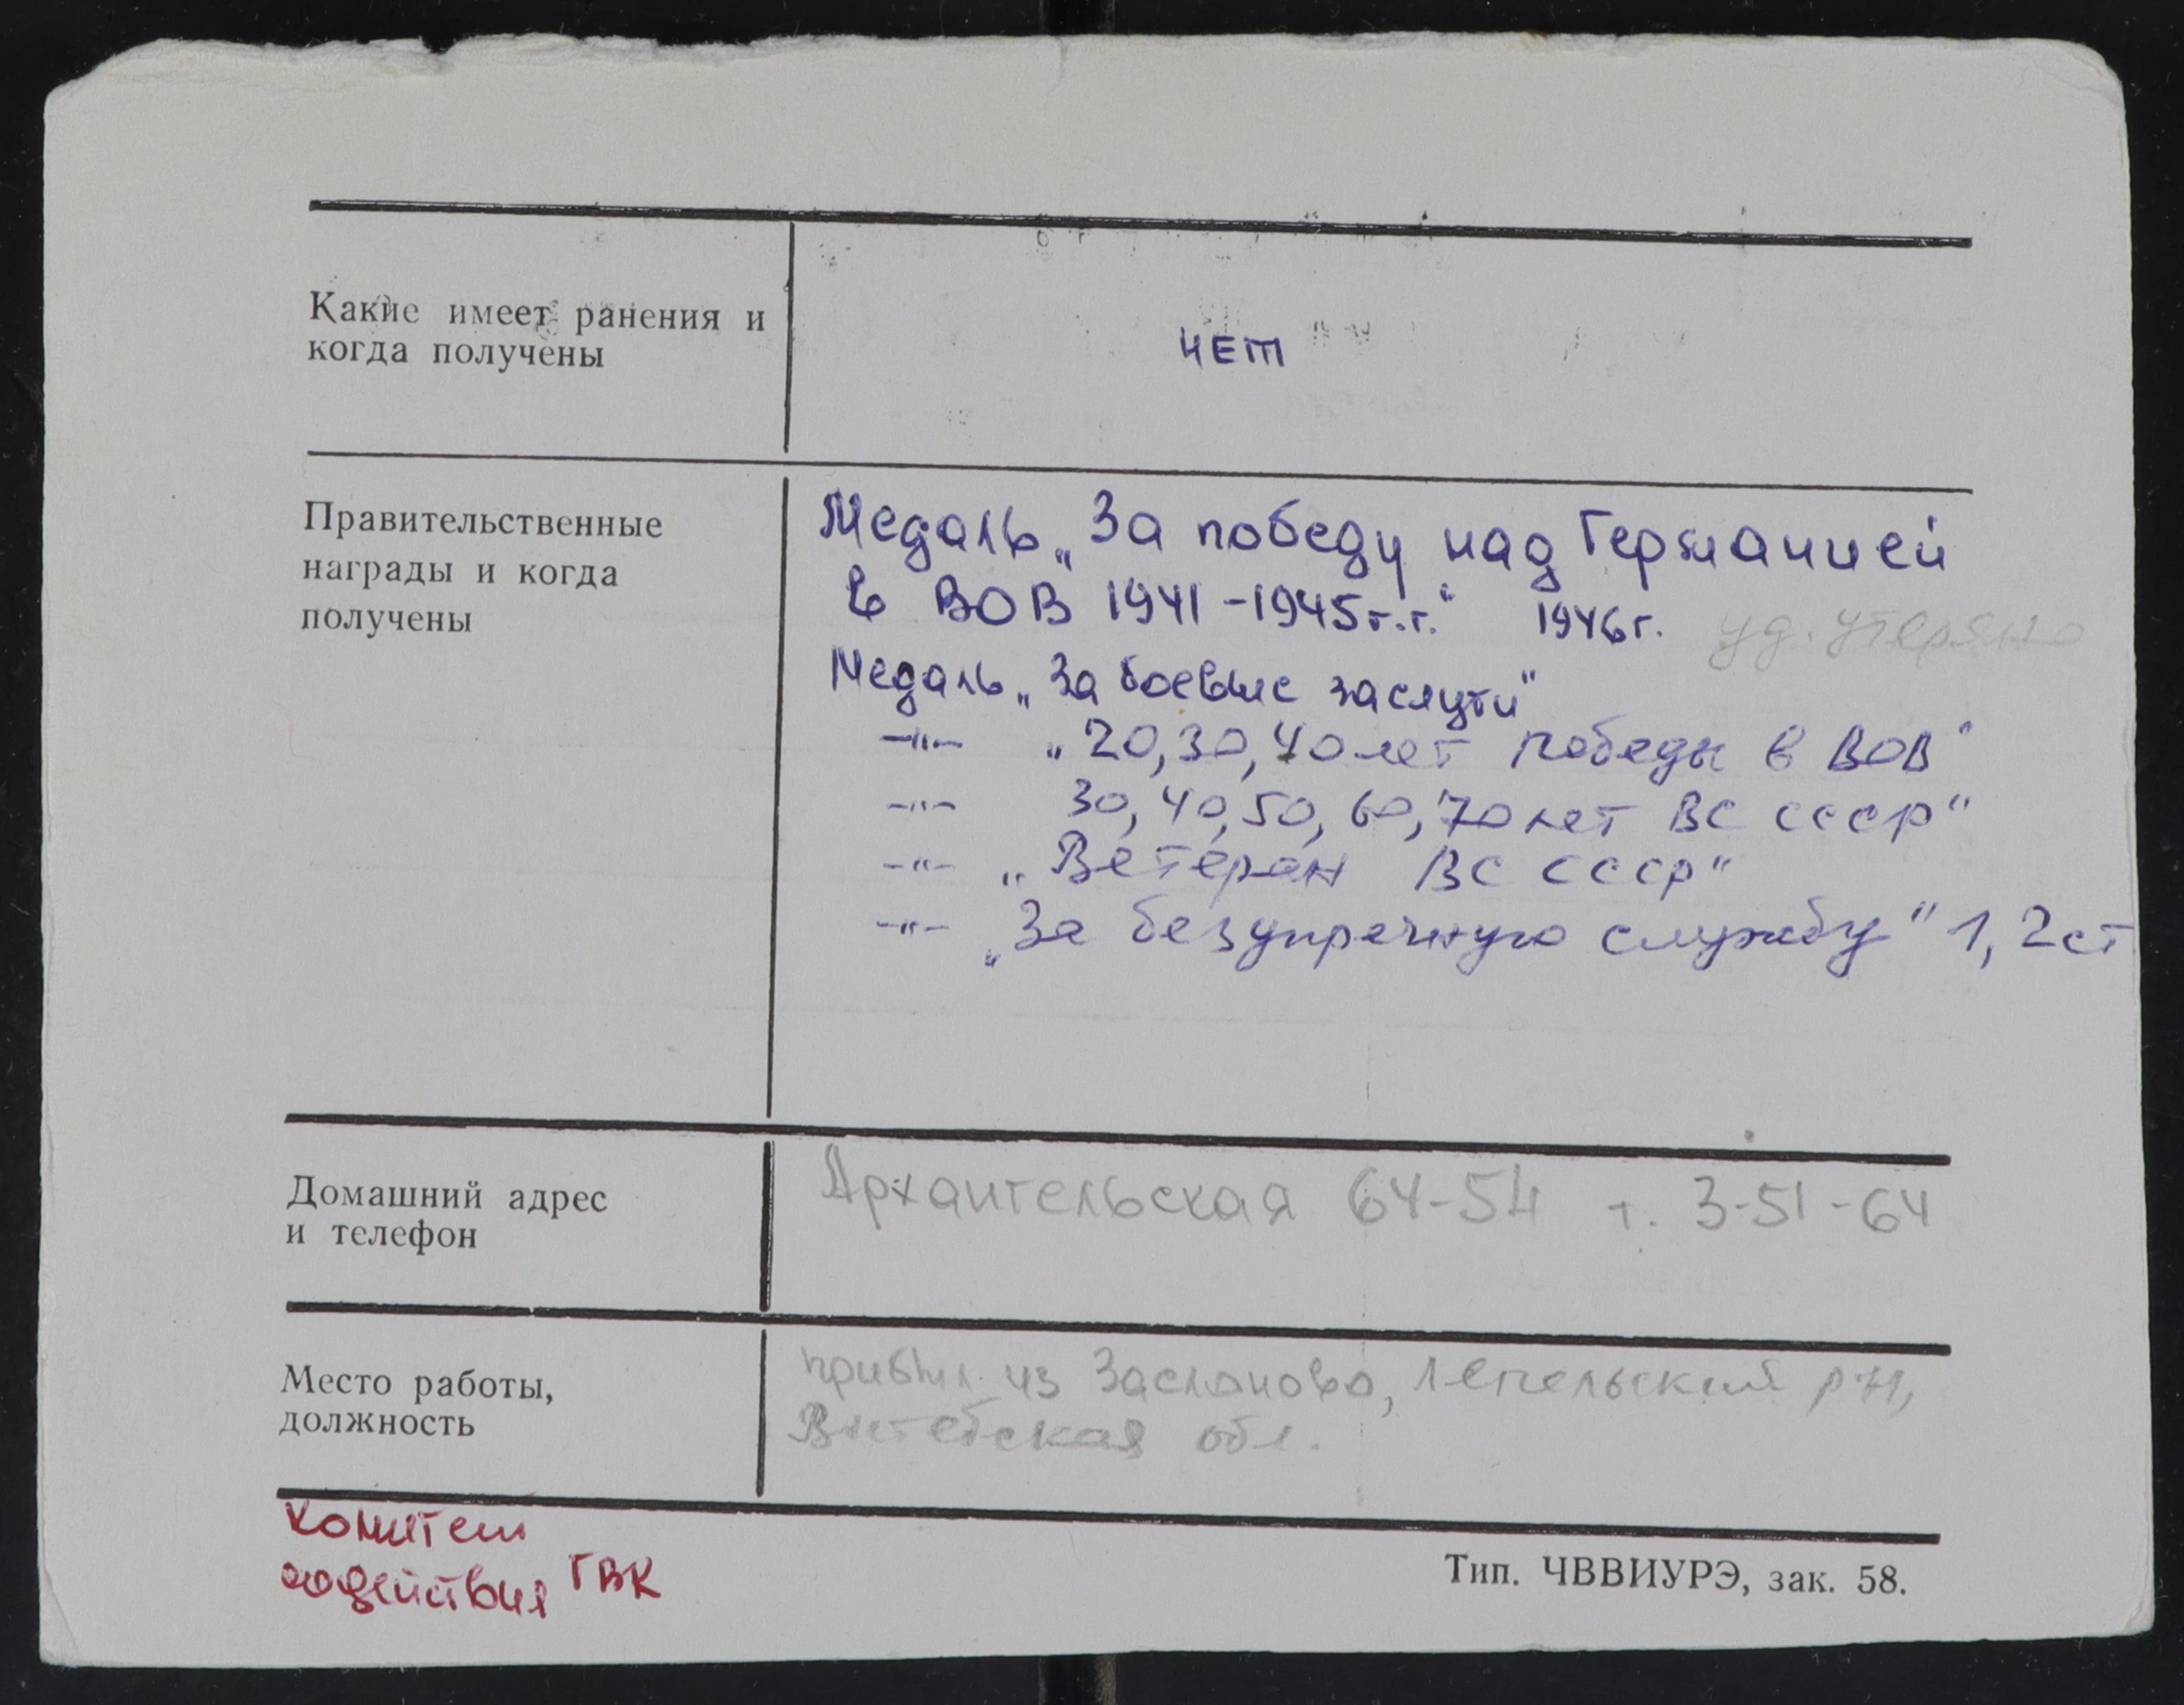 Какие имеет ранения и
когда получены
нет
Правительственные
награды и когда
получены
Медаль „За победу над Германией
в ВОВ 1941-1945г.г." 1946г. уд. утеряно
Медаль „За боевые заслуги"
-"- „20,30,40 лет Победы в ВОВ"
-"- 30,40,50,60,70 лет ВС СССР"
-"- „Ветеран ВС СССР"
-"- „За безупречную службу" 1,2 ст
Домашний адрес
и телефон
Архангельская 64-54 т. 3-51-64
Место работы,
должность
прибыл из Заслоново, Лепельский р-н,
Витебская обл.
Комитет
содействия ГВК
Тип. ЧВВИУРЭ, зак. 58.